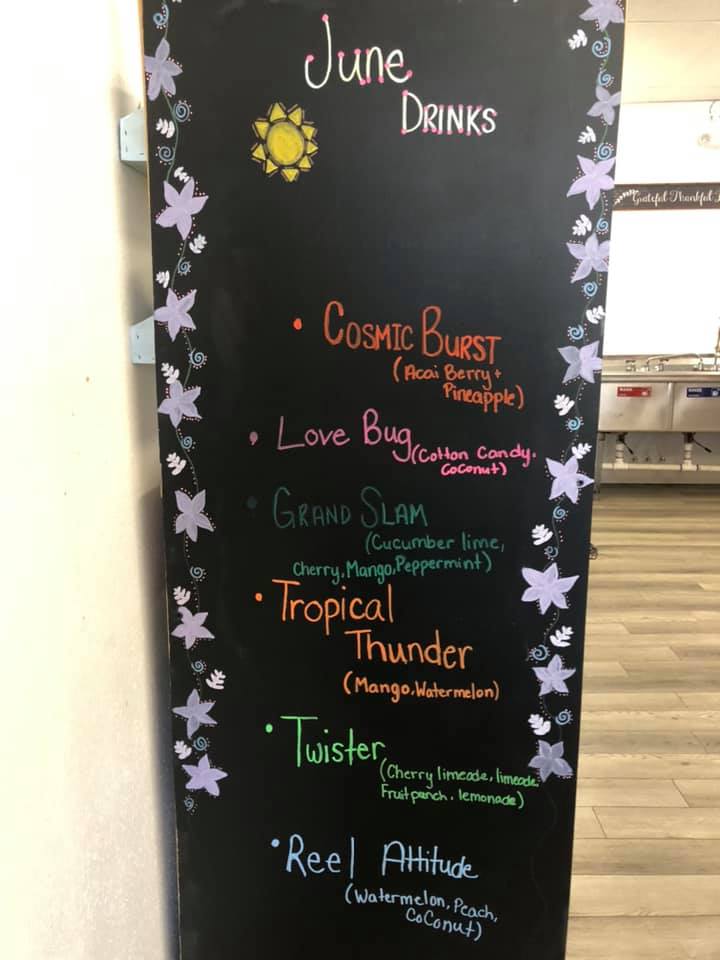 June
DRINKS
Grateful Thankful
• COSMIC BURST
(Acai Berry +
Pineapple)
• Love Bug (Cotton Candy,
Coconut)
• GRAND SLAM
(Cucumber lime,
Cherry, Mango, Peppermint)
• Tropical
Thunder
(Mango, Watermelon)
• Twister
(Cherry limeade, limeade,
Fruit punch, lemonade)
• Reel Attitude
(Watermelon, Peach,
Coconut)